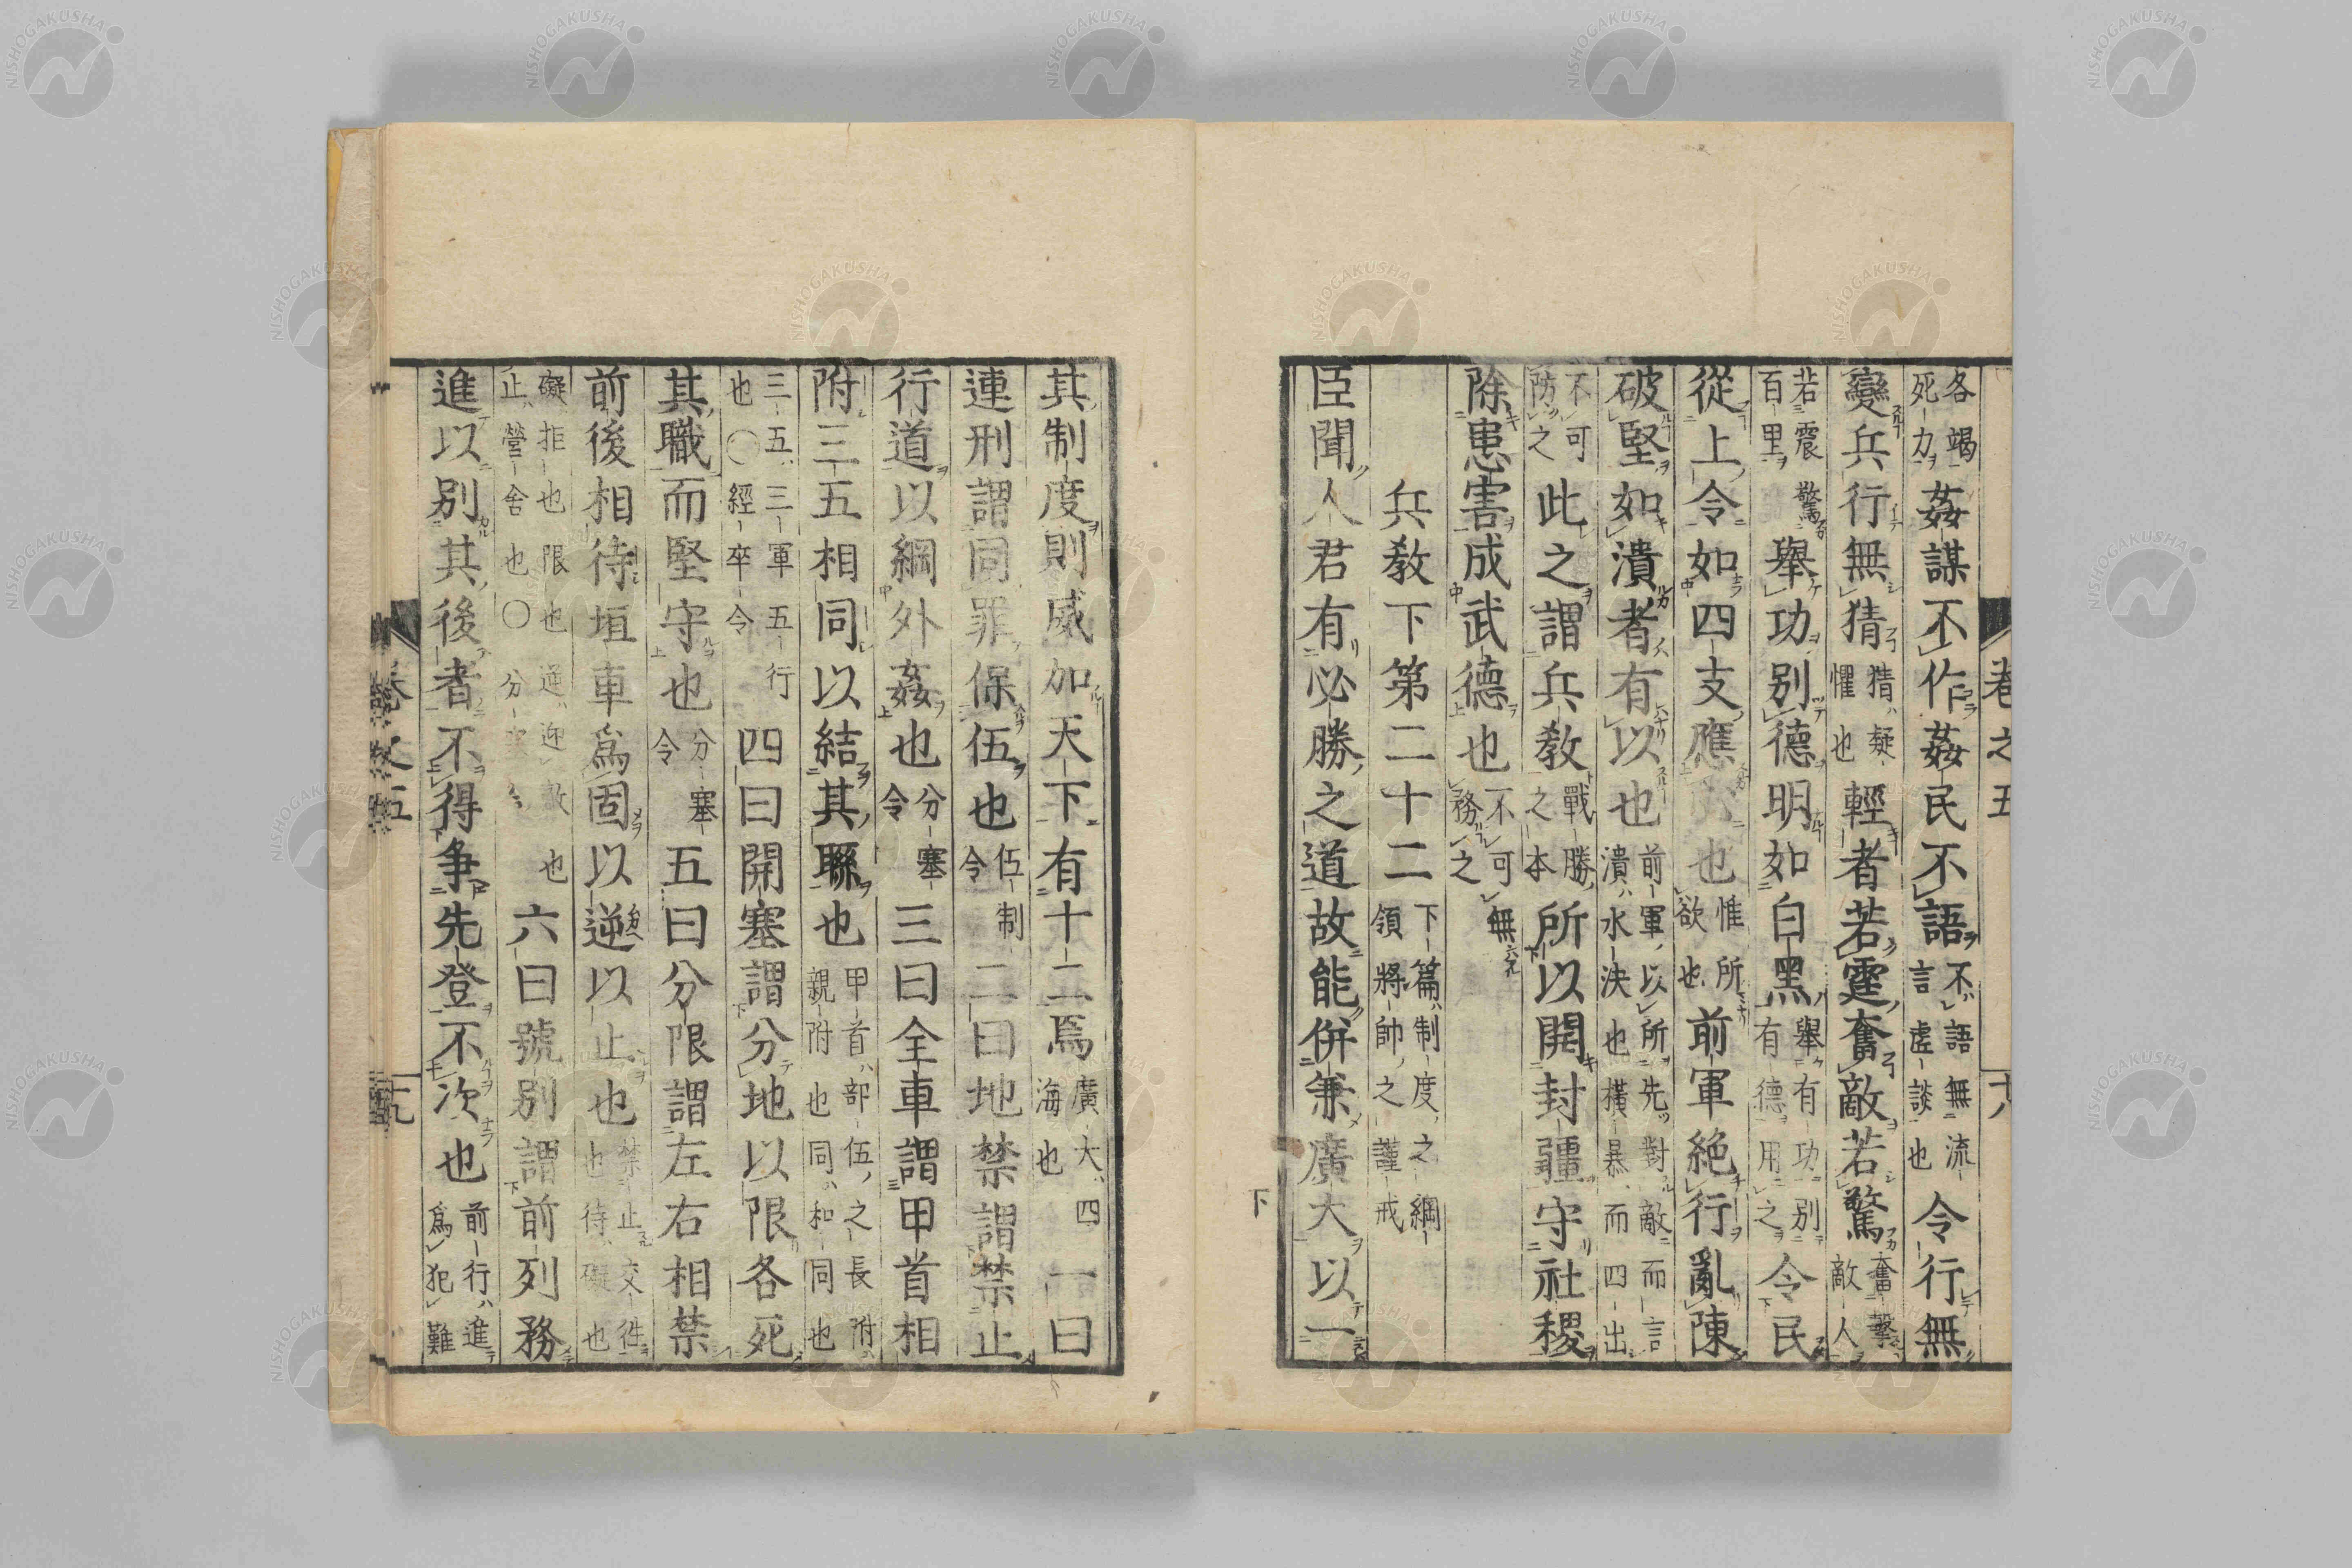 各竭死力姦謀不作姦民不語不語無流言虛談也令行無
變兵行無猜猜疑懼也輕者若霆奮敵若驚奮擊敵人
若震驚百里舉功別德明如白黑舉有功別有德用之令民
從上令如四支應心也惟所欲也前軍絕行亂陳
破堅如潰者有以也前軍以所先對敵而言潰水決也橫暴而四出
不可防之此之謂兵教戰勝之本所以開封疆守社稷
除患害成武德也不可無務之
兵教下第二十二下篇制度之綱領將帥之謹戒
臣聞人君有必勝之道故能併兼廣大以一
卷之五
十八
下
其制度則威加天下有十二焉廣大四海也一曰
連刑謂同罪保伍也伍制令二曰地禁謂禁止
行道以綱外姦也分塞令三曰全車謂甲首相
附三五相同以結其聯也甲首部伍之長附親附也同和同也
三五三軍五行也〇經卒令四曰開塞謂分地以限各死
其職而堅守也分塞令五曰分限謂左右相禁
前後相待垣車為固以逆以止也禁止交往也待礙也
礙拒也限也逆迎敵也止營舍也〇分塞令六曰號別謂前列務
進以別其後者不得爭先登不次也前行進為犯難
卷之五
十九
NISHOGAKUSHA
NISHOGAKUSHA
NISHOGAKUSHA
NISHOGAKUSHA
NISHOGAKUSHA
NISHOGAKUSHA
NISHOGAKUSHA
NISHOGAKUSHA
NISHOGAKUSHA